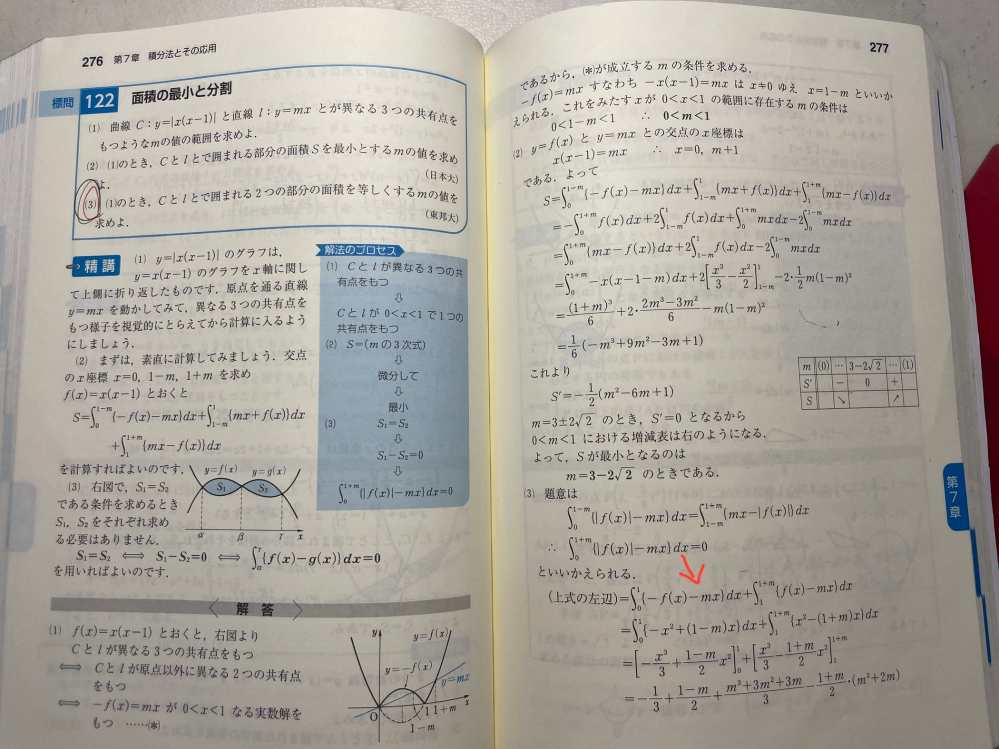 276 第7章 積分法とその応用
標問 122 面積の最小と分割
(1) 曲線 C：y=|x(x−1)| と直線 l：y=mx とが異なる3つの共有点を
もつようなmの値の範囲を求めよ．
(2) (1)のとき，Cとlとで囲まれる部分の面積Sを最小とするmの値を求め
よ．
(日本大)
(3) (1)のとき，Cとlとで囲まれる2つの部分の面積を等しくするmの値を
求めよ．
(東邦大)
精講
(1) y=|x(x−1)| のグラフは，
y=x(x−1) のグラフをx軸に関し
て上側に折り返したものです．原点を通る直線
y=mx を動かしてみて，異なる3つの共有点を
もつ様子を視覚的にとらえてから計算に入るよう
にしましょう．
(2) まずは，素直に計算してみましょう．交点
のx座標 x=0, 1−m, 1+m を求め
f(x)=x(x−1) とおくと
S=∫₀^{1−m}{−f(x)−mx}dx+∫_{1−m}^{1}{mx+f(x)}dx
+∫₁^{1+m}{mx−f(x)}dx
を計算すればよいのです．
(3) 右図で，S₁=S₂
である条件を求めるとき
S₁, S₂をそれぞれ求め
る必要はありません．
y=f(x) y=g(x)
S₁ S₂
α β γ x
S₁=S₂ ⟺ S₁−S₂=0 ⟺ ∫_α^γ{f(x)−g(x)}dx=0
を用いればよいのです．
解法のプロセス
(1) Cとlが異なる3つの共
有点をもつ
⇩
Cとlが 0<x<1 で1つの
共有点をもつ
(2) S=(mの3次式)
⇩
微分して
⇩
最小
(3) S₁=S₂
⇩
S₁−S₂=0
⇩
∫₀^{1+m}{|f(x)|−mx}dx=0
解答
(1) f(x)=x(x−1) とおくと，右図より
Cとlが異なる3つの共有点をもつ
⟺ Cとlが原点以外に異なる2つの共有点
をもつ
⟺ −f(x)=mx が 0<x<1 なる実数解を
もつ ……(*)
y y=f(x)
y=−f(x)
y=mx
O 1 1+m x
1−m
277
であるから，(*)が成立するmの条件を求める．
−f(x)=mx すなわち −x(x−1)=mx は x≠0 ゆえ x=1−m といいか
えられる．これをみたすxが 0<x<1 の範囲に存在するmの条件は
0<1−m<1 ∴ 0<m<1
(2) y=f(x) と y=mx との交点のx座標は
x(x−1)=mx ∴ x=0, m+1
である．よって
S=∫₀^{1−m}{−f(x)−mx}dx+∫_{1−m}^{1}{mx+f(x)}dx+∫₁^{1+m}{mx−f(x)}dx
=−∫₀^{1+m}f(x)dx+2∫_{1−m}^{1}f(x)dx+∫₀^{1+m}mxdx−2∫₀^{1−m}mxdx
=∫₀^{1+m}{mx−f(x)}dx+2∫_{1−m}^{1}f(x)dx−2∫₀^{1−m}mxdx
=∫₀^{1+m}−x(x−1−m)dx+2[x³/3−x²/2]_{1−m}^{1}−2·1/2 m(1−m)²
=(1+m)³/6+2·(2m³−3m²)/6−m(1−m)²
=1/6(−m³+9m²−3m+1)
これより
S′=−1/2(m²−6m+1)
m=3±2√2 のとき，S′=0 となるから
0<m<1 における増減表は右のようになる．
よって，Sが最小となるのは
m=3−2√2 のときである．
m (0) … 3−2√2 … (1)
S′ − 0 +
S ↘ ↗
(3) 題意は
∫₀^{1−m}{|f(x)|−mx}dx=∫_{1−m}^{1+m}{mx−|f(x)|}dx
∴ ∫₀^{1+m}{|f(x)|−mx}dx=0
といいかえられる．
(上式の左辺)=∫₀^{1}{−f(x)−mx}dx+∫₁^{1+m}{f(x)−mx}dx
=∫₀^{1}{−x²+(1−m)x}dx+∫₁^{1+m}{x²−(1+m)x}dx
=[−x³/3+(1−m)/2 x²]₀^{1}+[x³/3−(1+m)/2 x²]₁^{1+m}
=−1/3+(1−m)/2+(m³+3m²+3m)/3−(1+m)/2·(m²+2m)
第7章